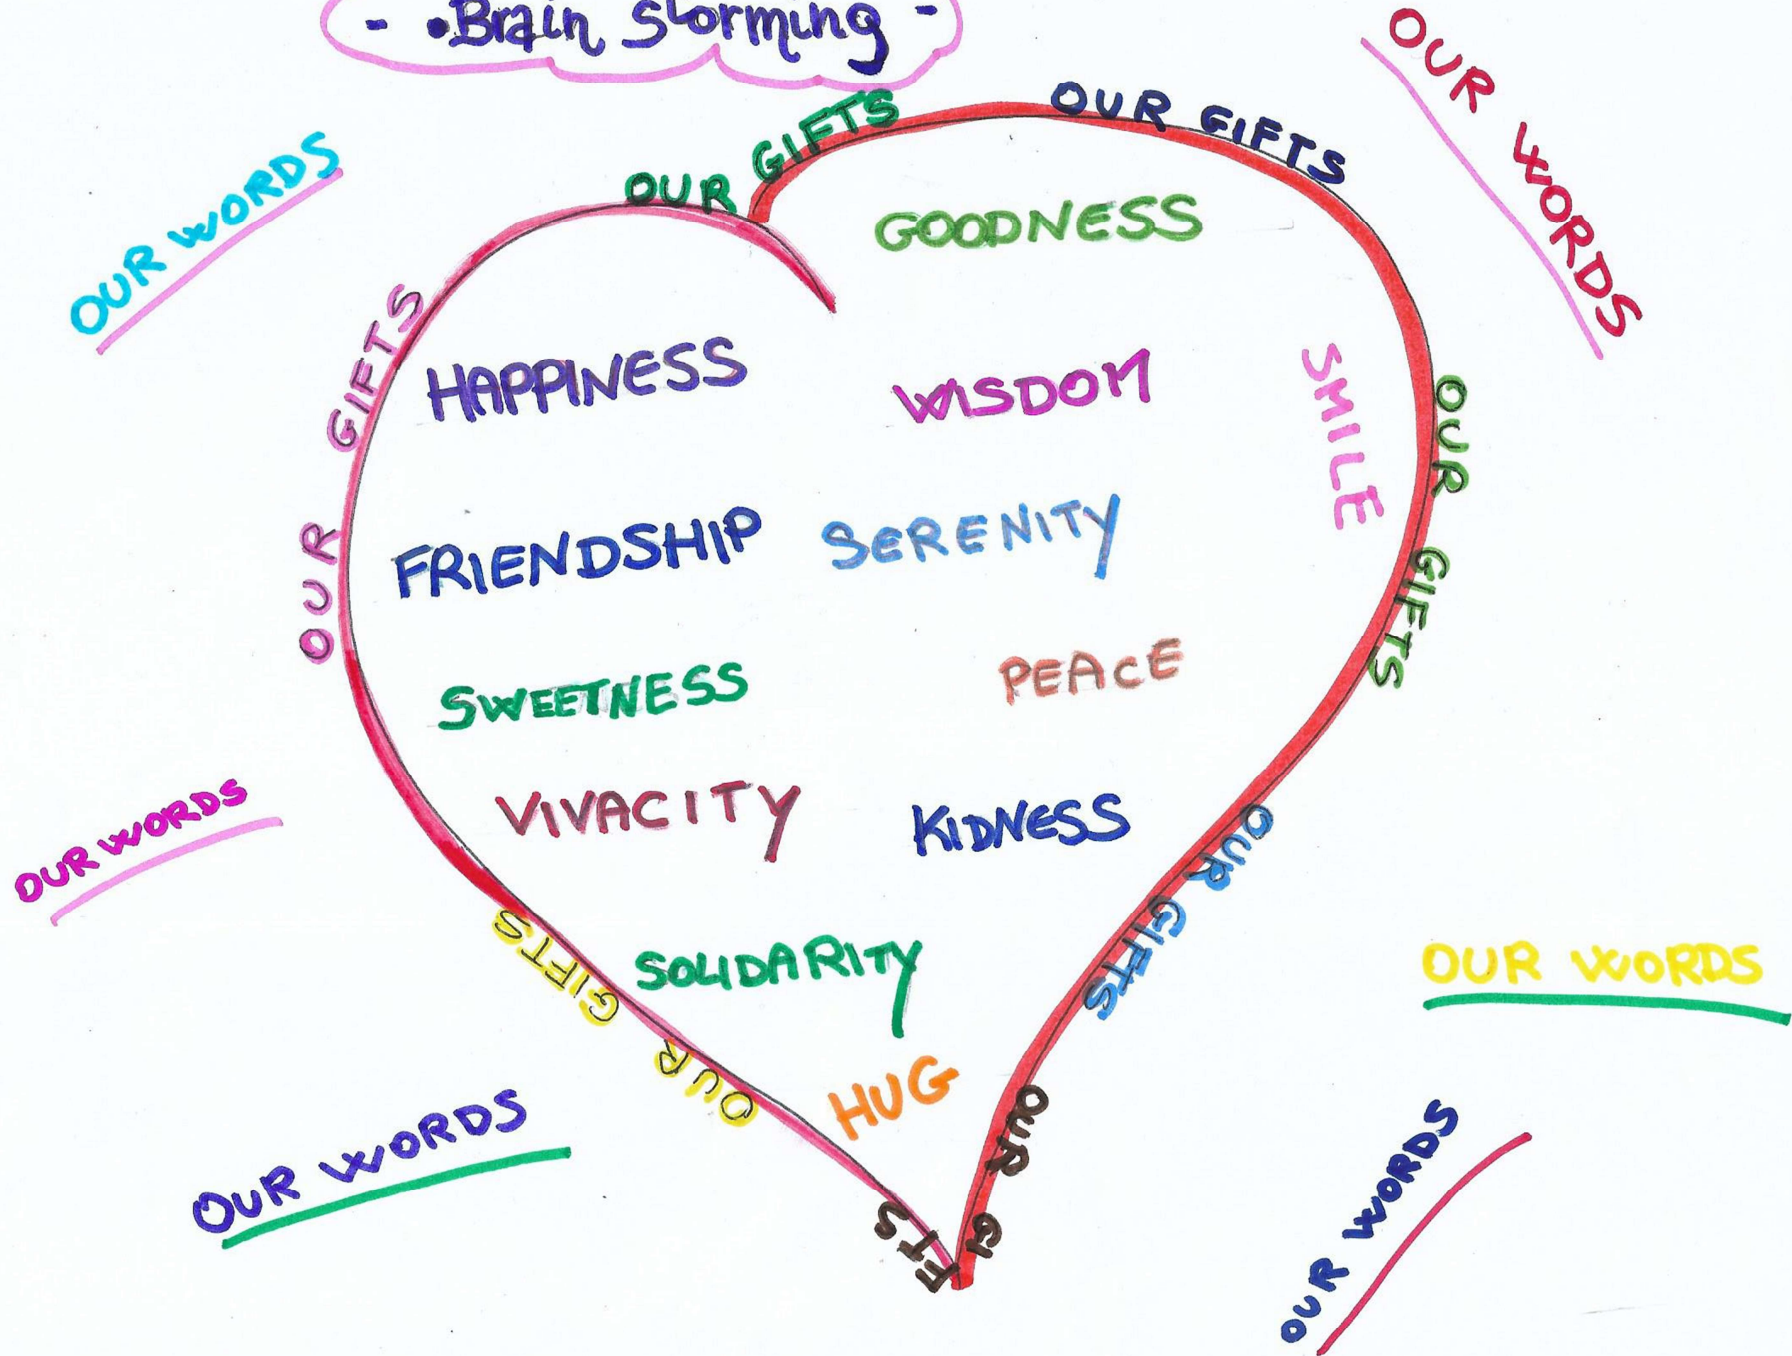 - • Brain Storming -
OUR WORDS
OUR GIFTS
OUR GIFTS
OUR WORDS
OUR GIFTS
GOODNESS
HAPPINESS
WISDOM
SMILE
FRIENDSHIP
SERENITY
OUR GIFTS
SWEETNESS
PEACE
VIVACITY
KIDNESS
OUR WORDS
OUR GIFTS
SOLIDARITY
OUR GIFTS
OUR WORDS
HUG
OUR WORDS
OUR GIFTS
OUR WORDS